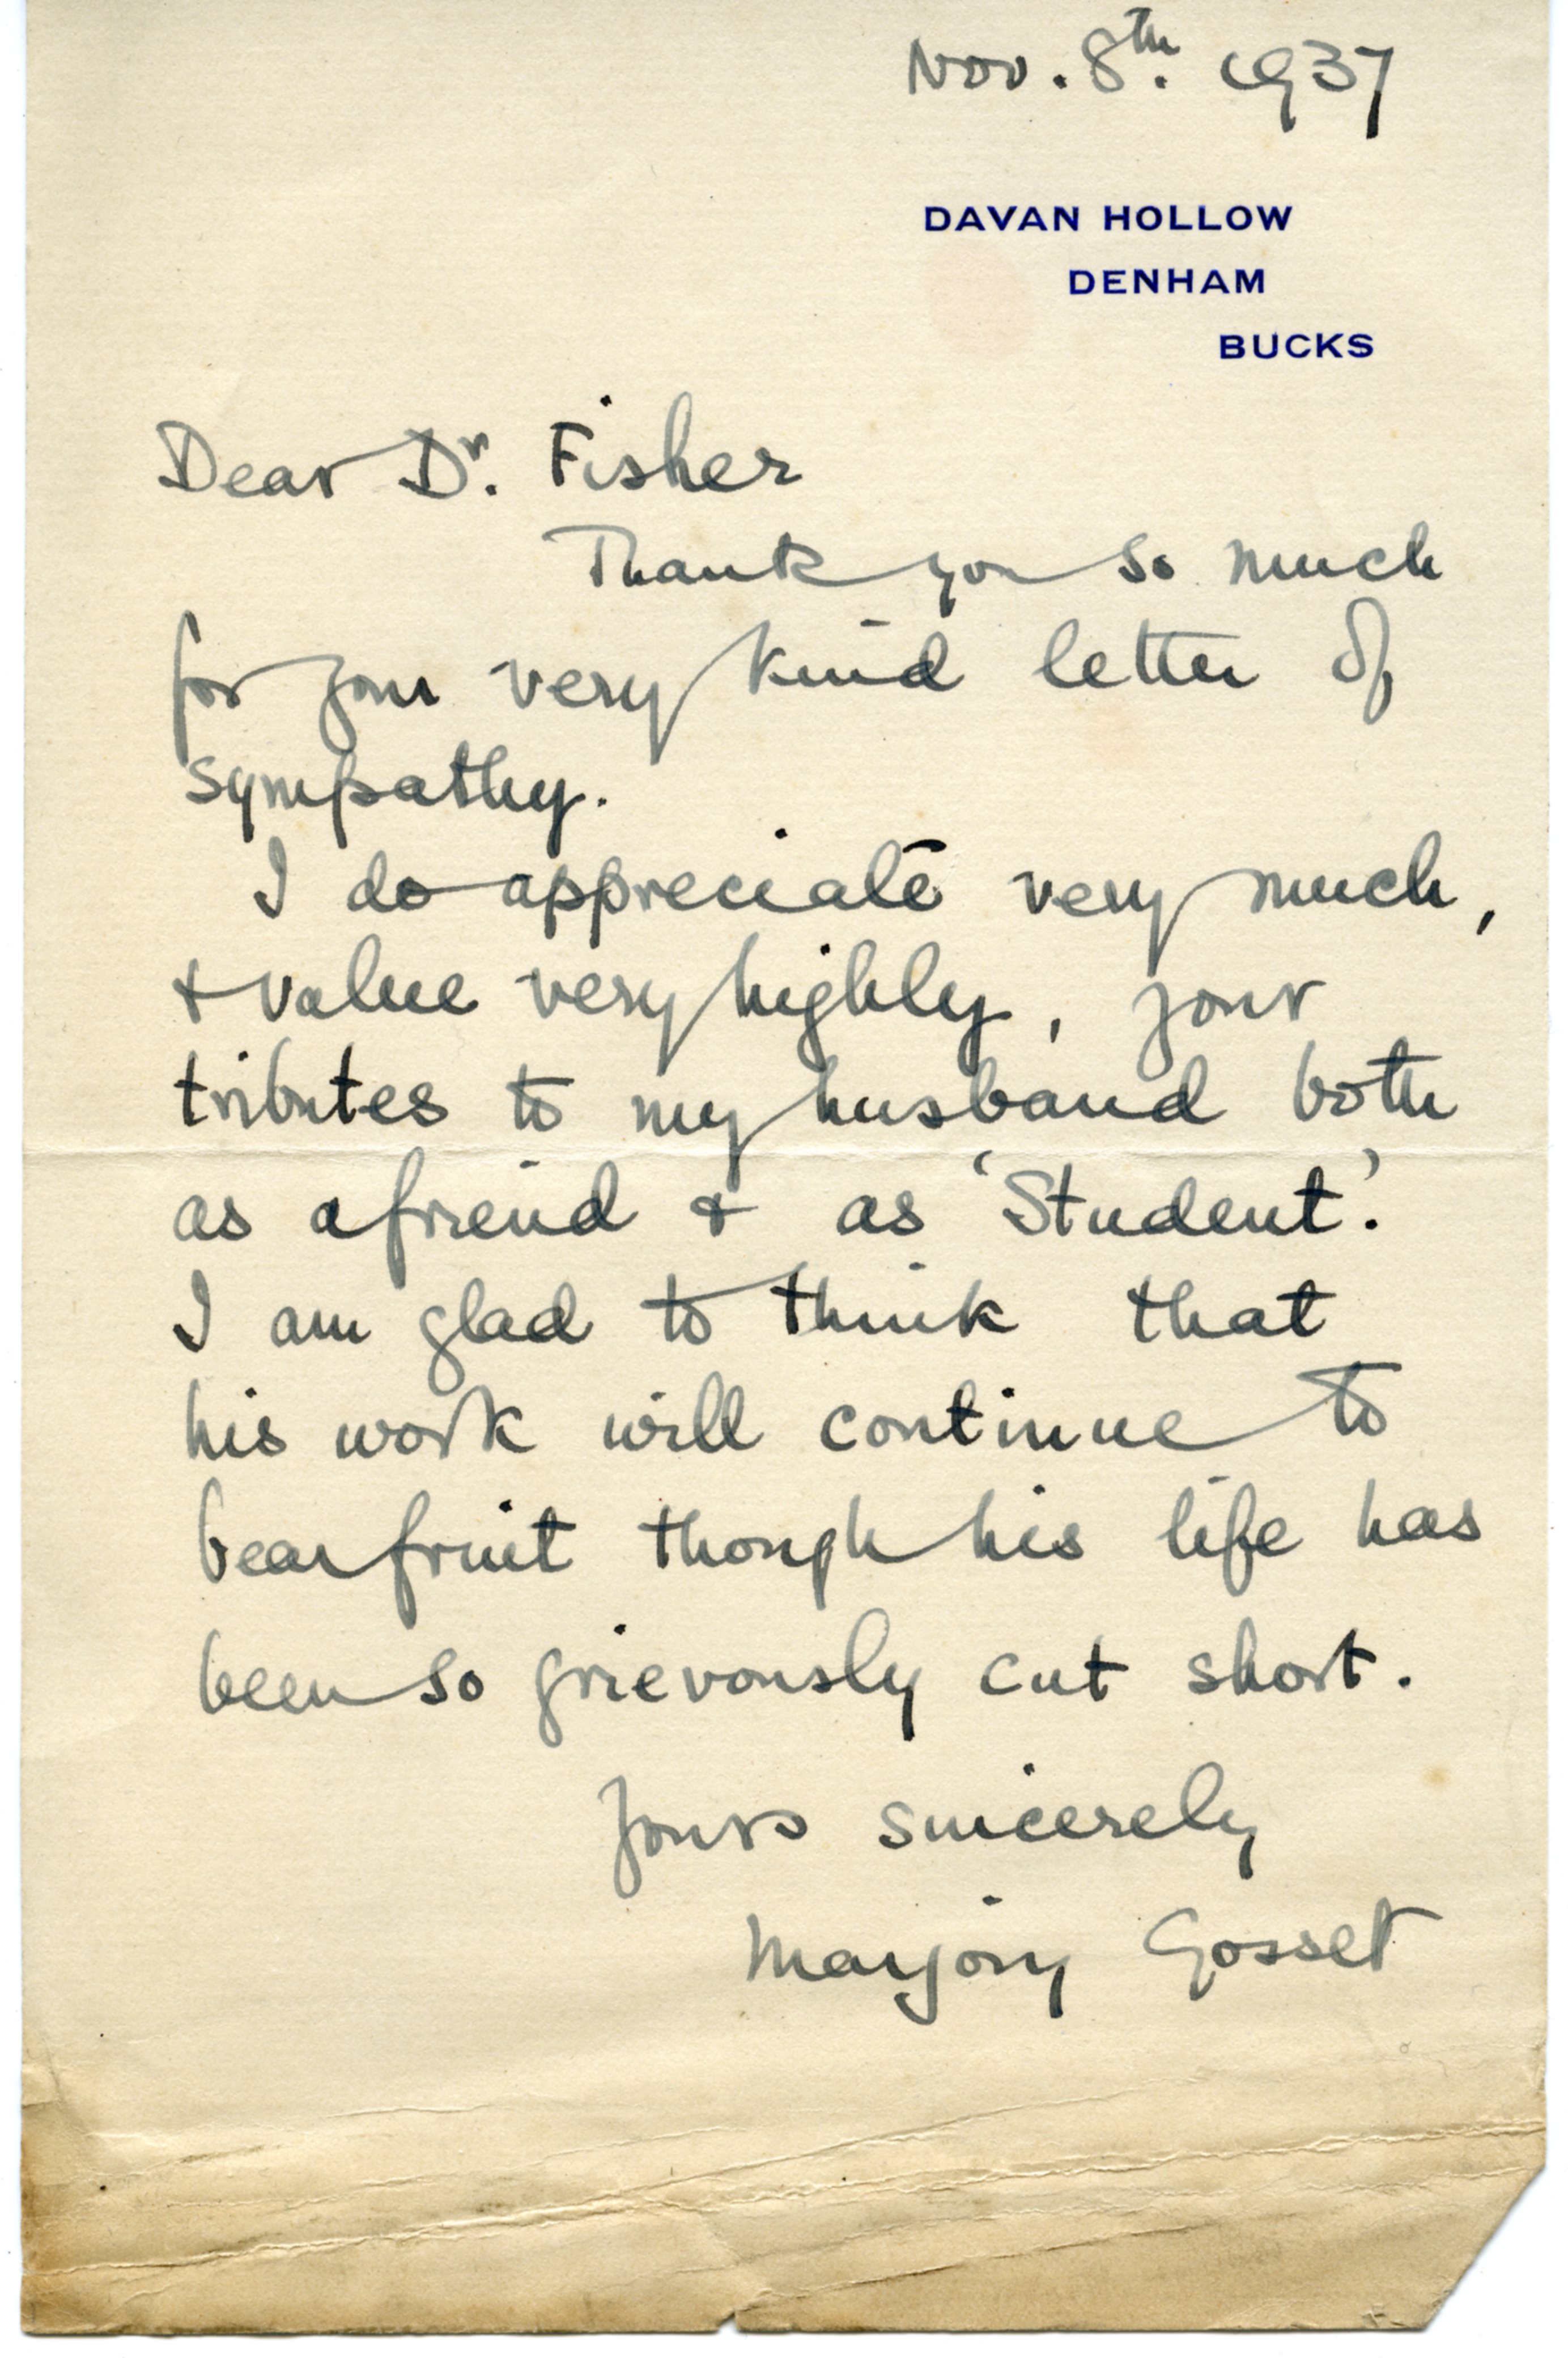 Nov. 8th. 1937
DAVAN HOLLOW
DENHAM
BUCKS
Dear Dr. Fisher
Thank you so much
for your very kind letter of
sympathy.
I do appreciate very much,
& value very highly, your
tributes to my husband both
as a friend & as 'Student'.
I am glad to think that
his work will continue to
bear fruit though his life has
been so grievously cut short.
Yours sincerely
Marjory Gosset